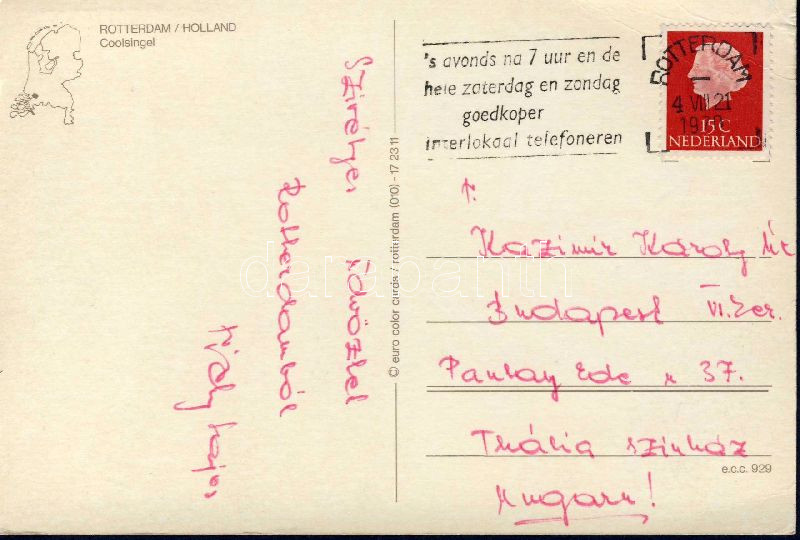 ROTTERDAM / HOLLAND
Coolsingel
's avonds na 7 uur en de
hele zaterdag en zondag
goedkoper
interlokaal telefoneren
ROTTERDAM
4 VIII 21
15 C
NEDERLAND
Szívélyes üdvözlet
Rotterdamból
Lajos
© euro color cards / rotterdam (010) - 17 23 11
T.
Kazimir Károly Úr
Budapest VI. ker.
Paulay Ede u 37.
Thália színház
e.c.c. 929
Hungary!
darabanth